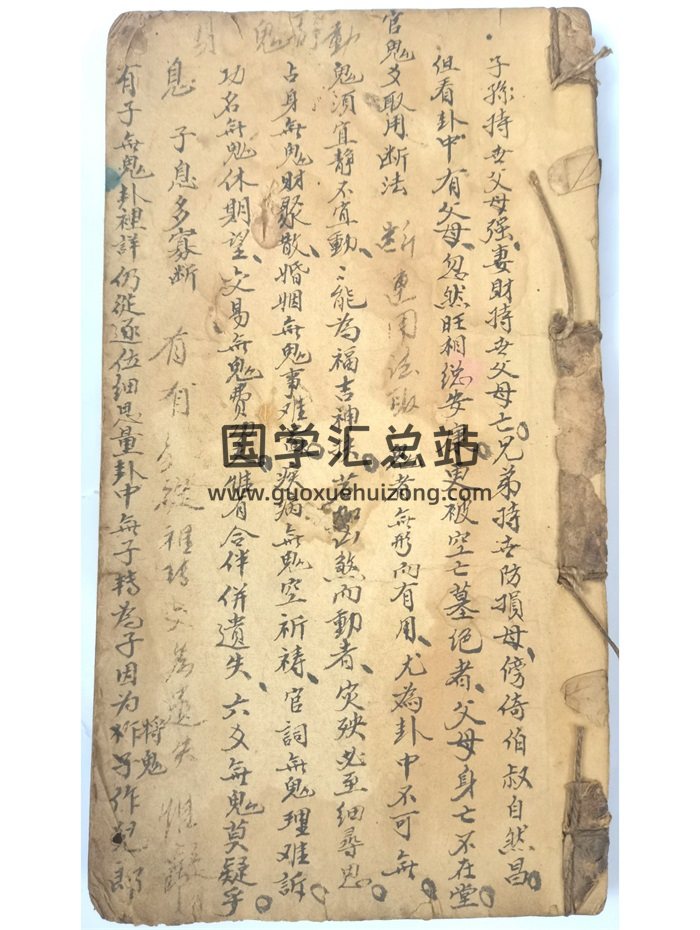 子孫持世父母强、妻財持世父母亡、兄弟持世防損母、傍倚伯叔自然昌。
但看卦中有父母、忽然旺相総安更被空亡墓絕者、父母身亡不在堂
官鬼爻取用断法 者無形而有用、尤為卦中不可無。
動鬼須宜静不宜動、〻能為福吉神扶煞而動者、灾殃必至細尋思。
占身無鬼財聚散、婚姻無鬼事难疾病無鬼空祈禱、官詞無鬼理难訴
功名無鬼休期望、交易無鬼費惟有合伴併遺失、六爻無鬼莫疑乎
息 子息多寡断
有子無鬼卦裡詳仍從逐位細思量卦中無子轉為子因为將鬼作兒郎
国学汇总站
www.guoxuehuizong.com